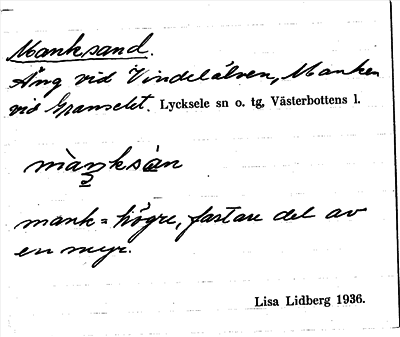 Manksand.
Äng vid Vindelälven, Manken
vid Granselet. Lycksele sn o. tg, Västerbottens l.
màŋksàn
mank = högre, fastare del av
en myr.
Lisa Lidberg 1936.